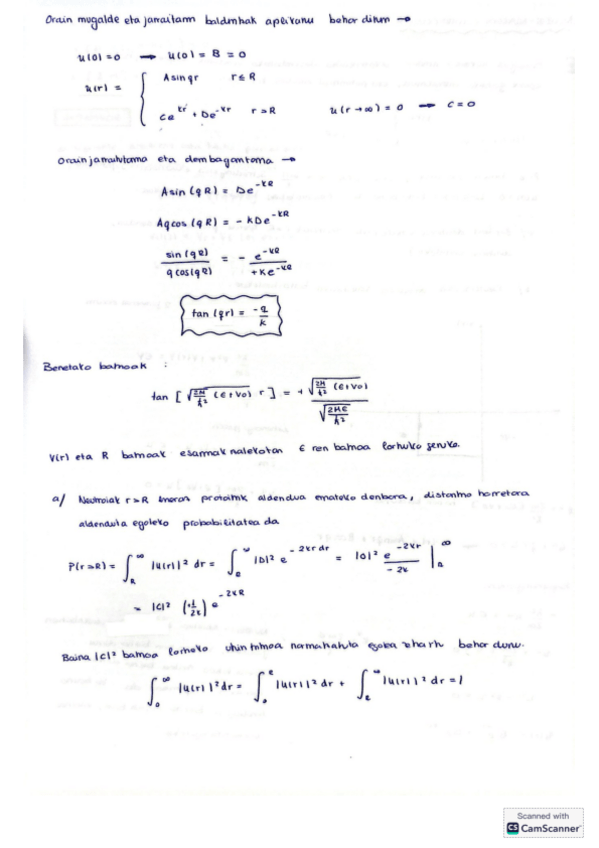 Orain mugalde eta jarraitasun baldintzak aplikatu behar ditun →
u(0)=0 → u(0) = B = 0
u(r) = { A sin qr r ≤ R
Ce^{kr} + De^{-kr} r > R u(r→∞) = 0 → C = 0
Orain jarraitutasuna eta deribagarritasuna →
A sin (qR) = De^{-kR}
Aq cos (qR) = - kDe^{-kR}
sin (qR) / q cos (qR) = - e^{-kR} / +ke^{-kR}
tan (qr) = -q/k
Benetako balioak :
tan [ √(2M/ħ² (E+V₀)) r ] = + √(2M/ħ² (E+V₀)) / √(2ME/ħ²)
V(r) eta R balioak E ren balioa lortuko genuke.
a/ Neutroiak r>R protoitik aldendua emateko denbora, distantzia horretara
aldenduta egoteko probabilitatea da
P(r>R) = ∫_R^∞ |u(r)|² dr = ∫_R^∞ |D|² e^{-2kr dr} = |D|² e^{-2kr} / -2k |_R^∞
= |C|² (+1/2k) e^{-2kR}
Baina |C|² balioa lortzeko uhin normalizatuta egoera behar dunu.
∫_0^∞ |u(r)|² dr = ∫_0^R |u(r)|² dr + ∫_R^∞ |u(r)|² dr = 1
Scanned with
CS CamScanner